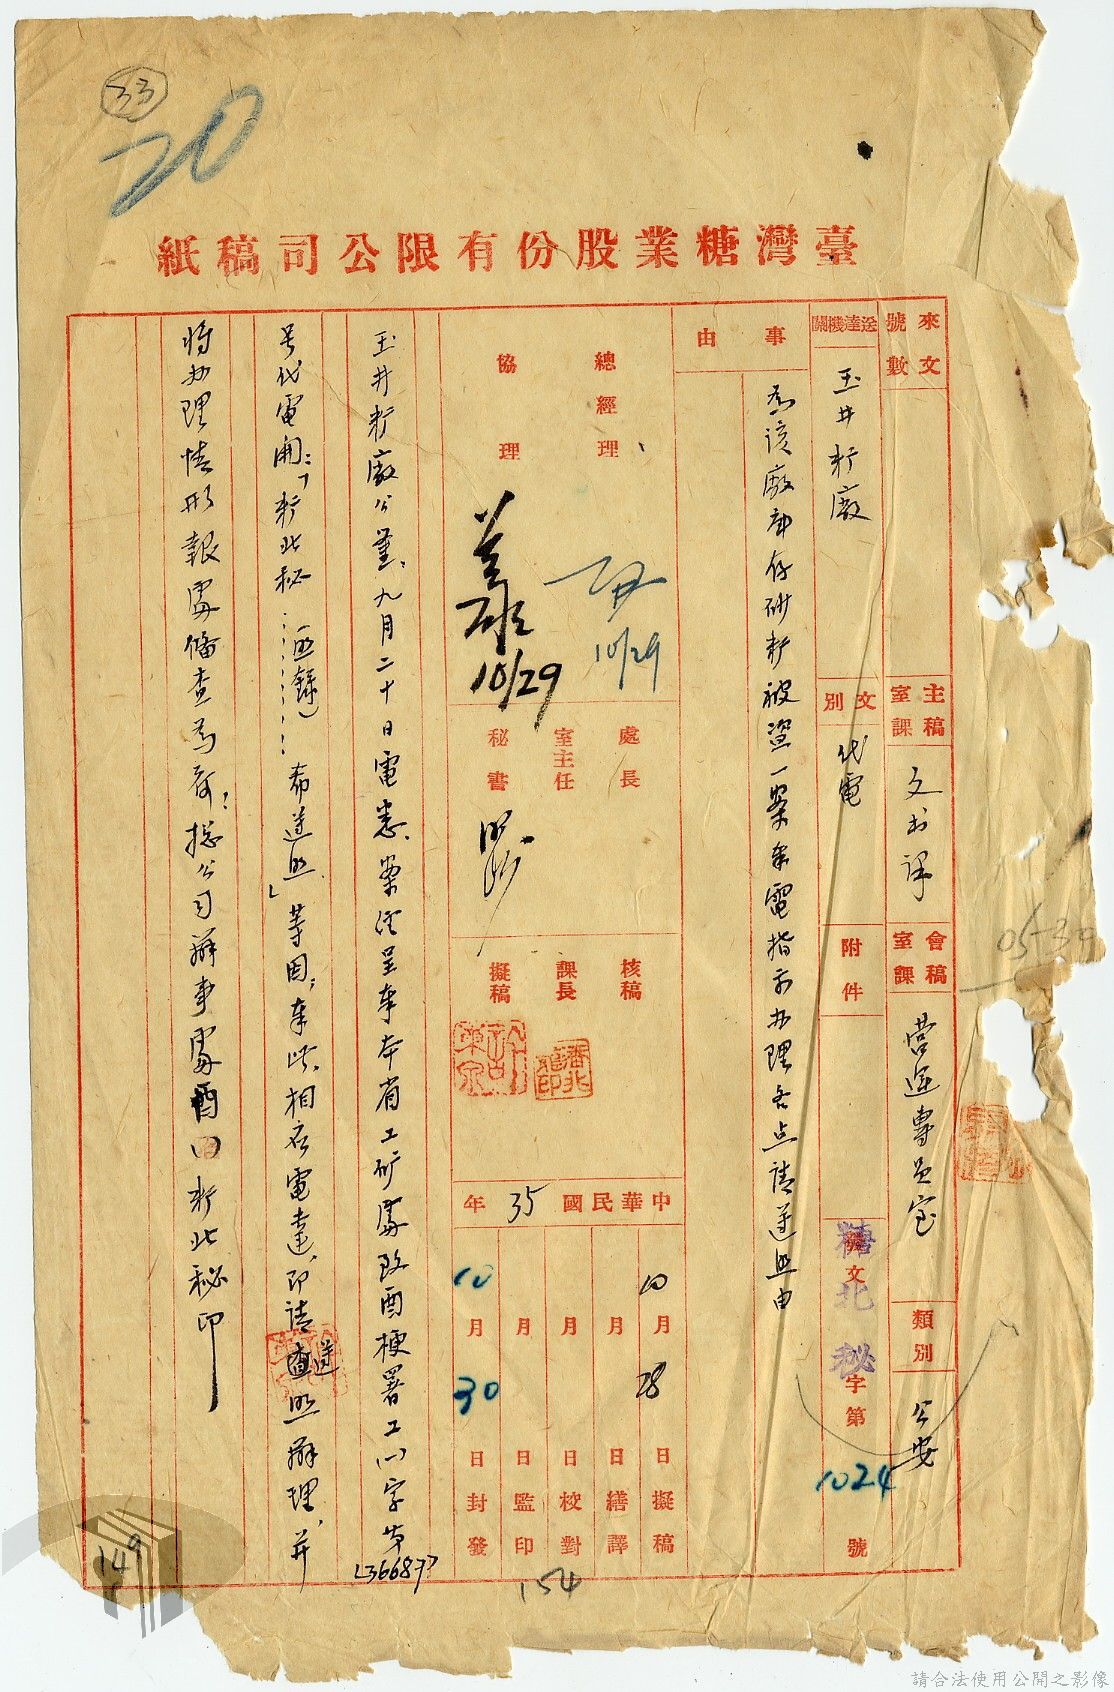 33
20
臺灣糖業股份有限公司稿紙
來文號數
主稿室課 文书课
會稿室課 营运專员室
類別 公安
送達機關 玉井糖廠
文別 代電
附件
發文 糖北秘 字第 1024 號
事由
为该廠庫存砂糖被盜一案奉電指示办理各点请遵照由
總經理 10/29
協理 10/29
處長
室主任
秘書
核稿
課長
擬稿
中華民國 35 年
10 月 28 日擬稿
月 日繕譯
月 日校對
月 日監印
10 月 30 日封發
玉井糖廠公鉴：九月二十日電悉。案经呈奉本省工矿處致酉梗署工(一)字第(36687)
号代電開：「糖北秘……(照錄)……希遵照」等因；奉此，相应電達，即请遵照辦理，并
将办理情形報處俻查为荷；总公司辦事處酉 糖北秘印
05-39
149
154
請合法使用公開之影像